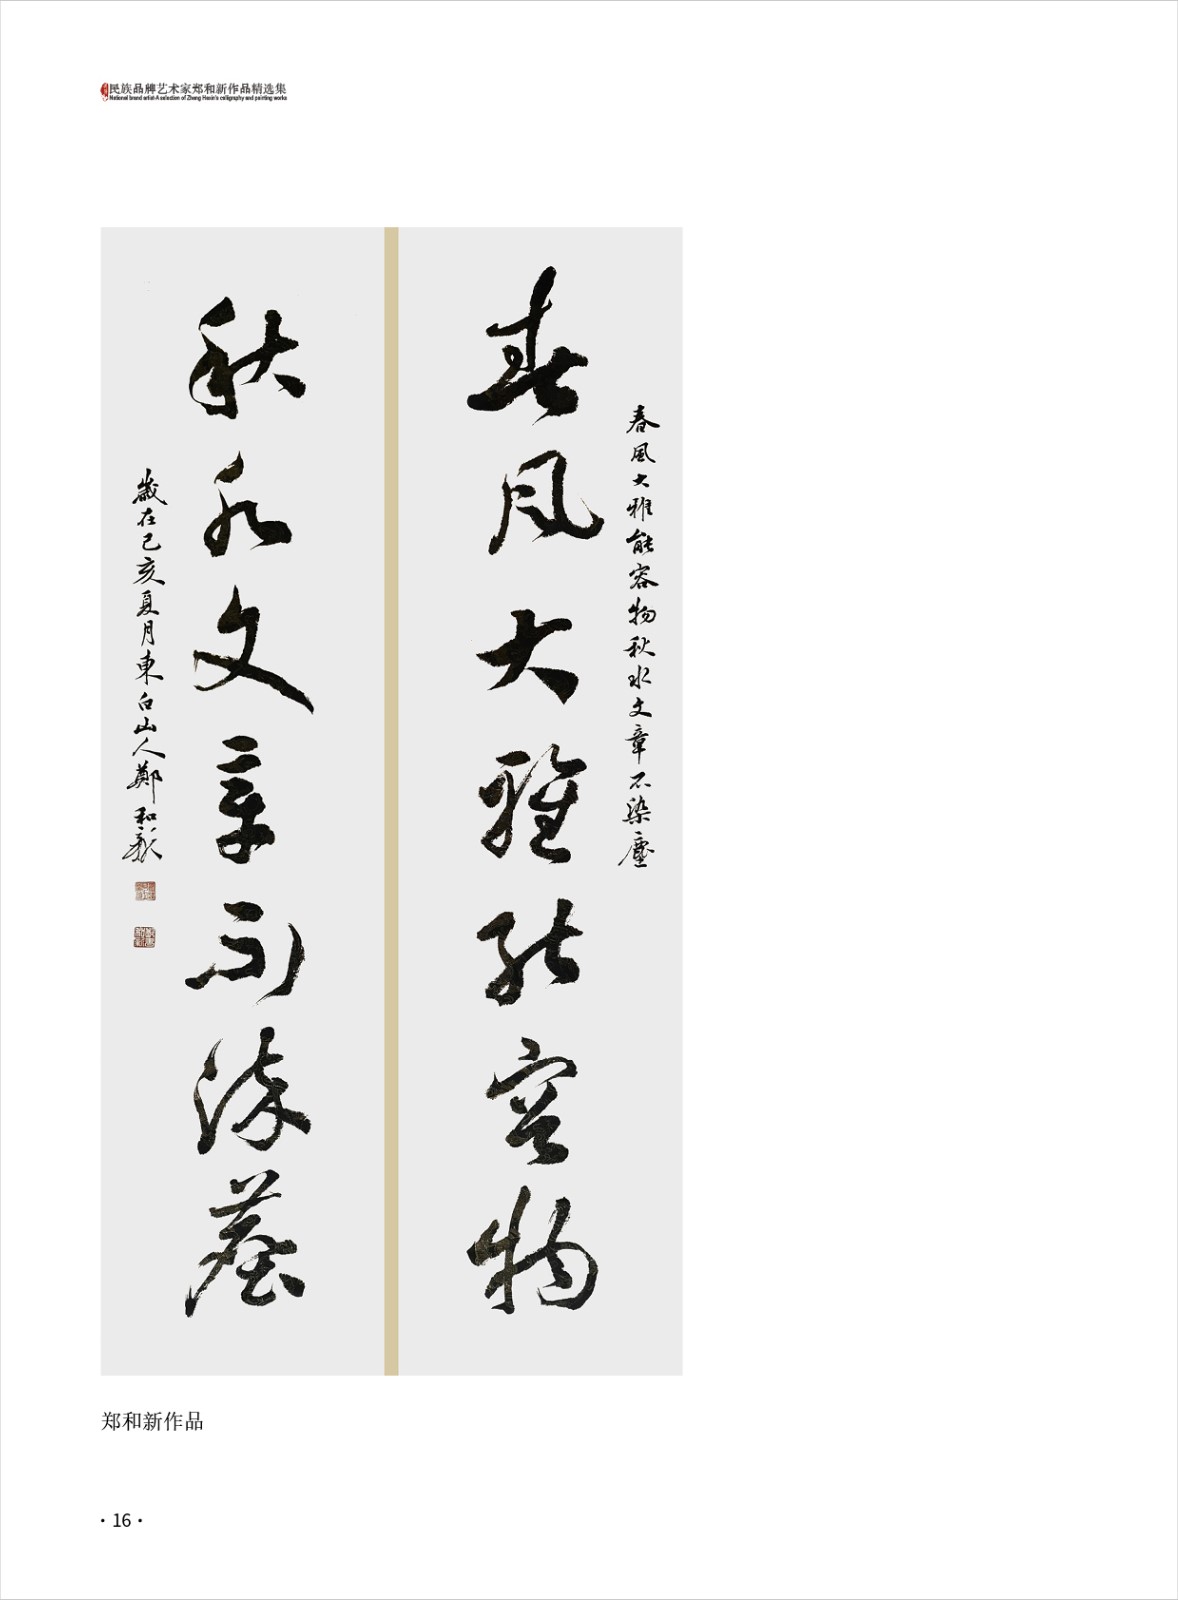 民族品牌艺术家郑和新作品精选集
National brand artist-A selection of Zheng Hexin's calligraphy and painting works
春風大雅能容物秋水文章不染塵
春风大雅能容物
秋水文章不染塵
歲在己亥夏月東白山人鄭和新
郑和新作品
·16·